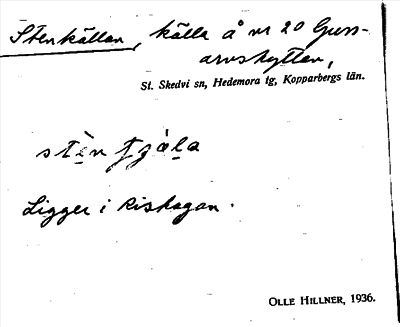 Stenkällan, källa å nr 20 Guss-
arvshyttan,
St. Skedvi sn, Hedemora tg, Kopparbergs län.
stèn tjäla
Ligger i Rishagan.
OLLE HILLNER, 1936.